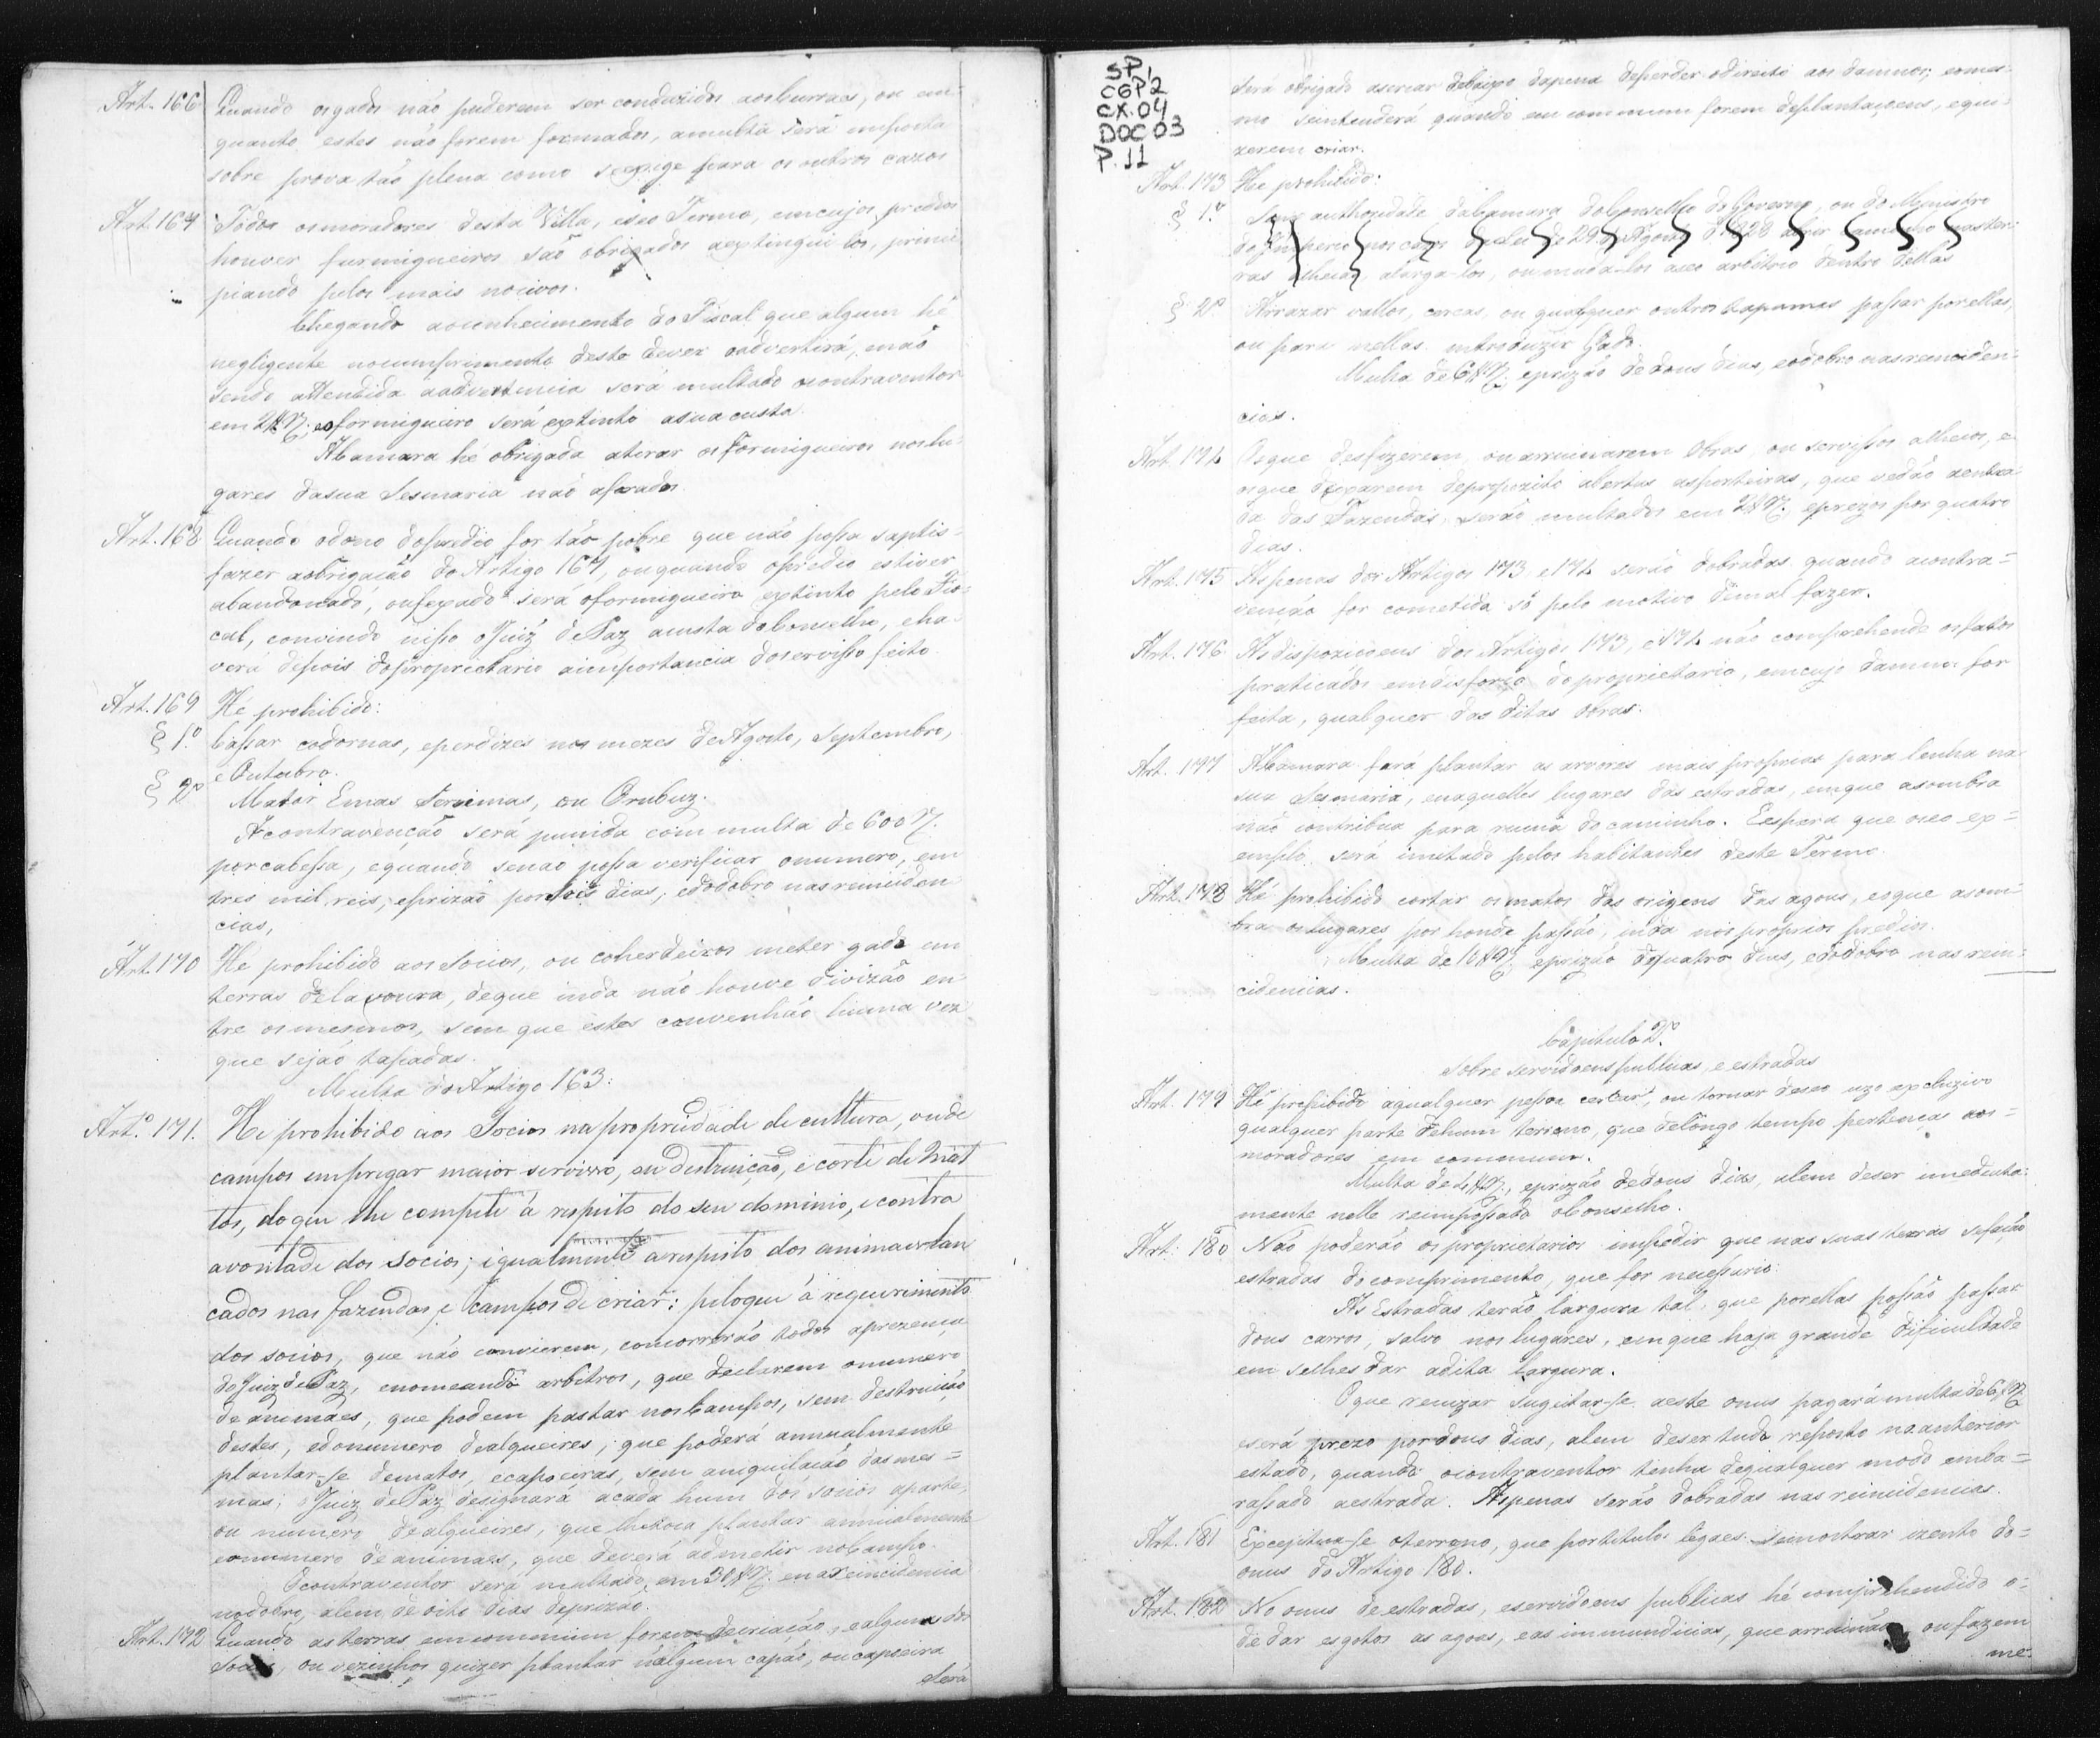 Art. 166 Quando os gados não puderem ser conduzidos aos Curraes, ou em-
quanto estes não forem formados, a multa será imposta
sobre prova tão plena como se exige para os outros cazos
Art. 167 Todos os moradores desta Villa, e seo Termo, em cujos predios
houver furmigueiros são obrigados a extingui los, princi-
piando pelos mais nocivos.
Chegando ao conhecimento do Fiscal que algum hé
negligente no cumprimento deste dever o advertirá, e não
sendo attendida a advertencia será multado o contraventor
em 2$rs, e o formigueiro será extinto a sua custa.
A Camara hé obrigada a tirar os formigueiros nos lu-
gares da sua Sesmaria não aforados.
Art. 168 Quando o dono do predio for tão pobre que não possa saptis-
fazer a obrigação do Artigo 167, ou quando o predio estiver
abandonado, ou fexado será o formigueiro extinto pelo Fis-
cal, convindo nisso o Juiz de Paz a custa do Conselho, e ha-
verá depois do proprietario a importancia do servisso feito.
Art. 169 Hé prohibido:
§ 1.º Cassar codornas, e perdizes nos mezes de Agosto, Septembro,
e Outubro.
§ 2º Matar Emas Seriemas, ou Orubuz.
A contravenção será punida com multa de 600 rs.
por cabessa, e quando se não possa verificar o numero, em
tres mil reis, e prizão por dois dias, e do dobro nas reinciden
cias,
Art. 170 He prohibido aos Socios, ou coherdeiros meter gado em
terras de lavoura, de que inda não houve divizão en-
tre os mesmos, sem que estes convenhão huma vez
que sejão tapadas.
Multa do Artigo 163:
Art.º 171. He prohibido aos Socios na propriedade de cultura, ou de
campos empregar maior servisso, ou destruição, e corte de Mat
tos, do que lhe compete á respeito do seu dominio, e contra
a vontade dos socios; igualmente a respeito dos animaes tan
cados nas fazendas, e Campos de criar: pelo que á requerimento
dos socios, que não convierem, concorrerão todos a prezença
do Juiz de Paz, e nomeando arbitros, que declarem o numero
de animaes, que podem pastar nos Campos, sem destruição
destes, e do numero de alqueires, que poderá annualmente
plantar-se de matos, e capoeiras, sem aniquilação das mes=
mas; o Juiz de Paz designará a cada hum dos socios a parte,
ou numero de alqueires, que lhe toca plantar annualmente
e o numero de animaes, que deverá admetir no Campo.
O contraventor será multado em 30$rs. e na reincidencia
no dobro, alem de oito dias de prizão.
Art. 172 Quando as terras em commum forem de criação, e algum dos
Socios, ou vezinhos quizer plantar n'algum capão, ou capoeira
Será
SP
CGP2
CX.04
DOC 03
P.11
será obrigado a cercar debaixo da pena de perder o direito aos damnos; e o mes-
mo se intenderá quando em commum forem de plantaçoens, e qui-
zerem criar.
Art. 173 He prohibido:
§ 1.º Sem authoridade da Camara do Conselho do Governo, ou do Ministro
do Imperio nos cazos da Lei de 29 de Agosto de 1828 abrir caminho nas ter-
ras alheias, alarga-los, ou muda-los a seo arbitrio dentro dellas
§ 2º Arrazar vallos, cercas, ou qualquer outros tapumes passar por ellas,
ou para nellas introduzir Gado.
Multa de 6$rs. e prizão de dous dias, e o dobro nas reinciden-
cias.
Art. 174 Os que desfizerem, ou arruinarem Obras, ou servissos alheios, e
os que deixarem de propozito abertas as porteiras, que vedão a entra-
da das Fazendas, serão multados em 2$rs. e prezos por quatro
dias.
Art. 175 As penas dos Artigos 173, e 174 serão dobradas quando a contra=
venção for cometida só pelo motivo de mal fazer.
Art. 176 As dispoziçoens dos Artigos 173, e 174 não comprehende os fatos
praticados em disforço do proprietario, em cujo damno for
feita, qualquer das ditas obras.
Art. 177 A Camara fará plantar as arvores mais proprias para lenha na
sua Sesmaria, e naquelles lugares das estradas, em que a sombra
não contribua para ruina do caminho. E espera que o seo ex=
emplo será imitado pelos habitantes deste Termo.
Art. 178 Hé prohibido cortar os matos das origens das agoas, e o que asom=
bra os lugares por honde passão, inda nos proprios predios.
Multa de 10$rs. e prizão de quatro dias, e do dobro nas rein-
cidencias.
Capitulo 2º.
Sobre servidoens publicas, e estradas
Art. 179 Hé prohibido a qualquer pessoa cercar, ou tornar de seo uzo excluzivo
qualquer parte de hum terreno, que de longo tempo pertença aos=
moradores em commum.
Multa de 4$rs., e prizão de dous dias, alem de ser imediata-
mente nelle reimpossado o Conselho.
Art. 180 Não poderão os proprietarios impedir que nas suas terras se fação
estradas do comprimento, que for necessario.
As Estradas terão largura tal, que por ellas possão passar
dous carros, salvo nos lugares, em que haja grande dificuldade
em se lhes dar a dita largura.
O que recuzar sugeitar-se a este onus pagará multa de 6$rs
e será prezo por dous dias, alem de ser tudo resposto no anterior
estado, quando o contraventor tenha de qualquer modo emba=
rassado a estrada. As penas serão dobradas nas reincidencias.
Art. 181 Exceptua-se o terreno, que por titulos legaes se mostrar izento do=
onus do Artigo 180.
Art. 182 No onus de estradas, e servidoens publicas hé comprehendido o=
de dar esgotos as agoas, e as immundicias, que arruinão, ou fazem
me-